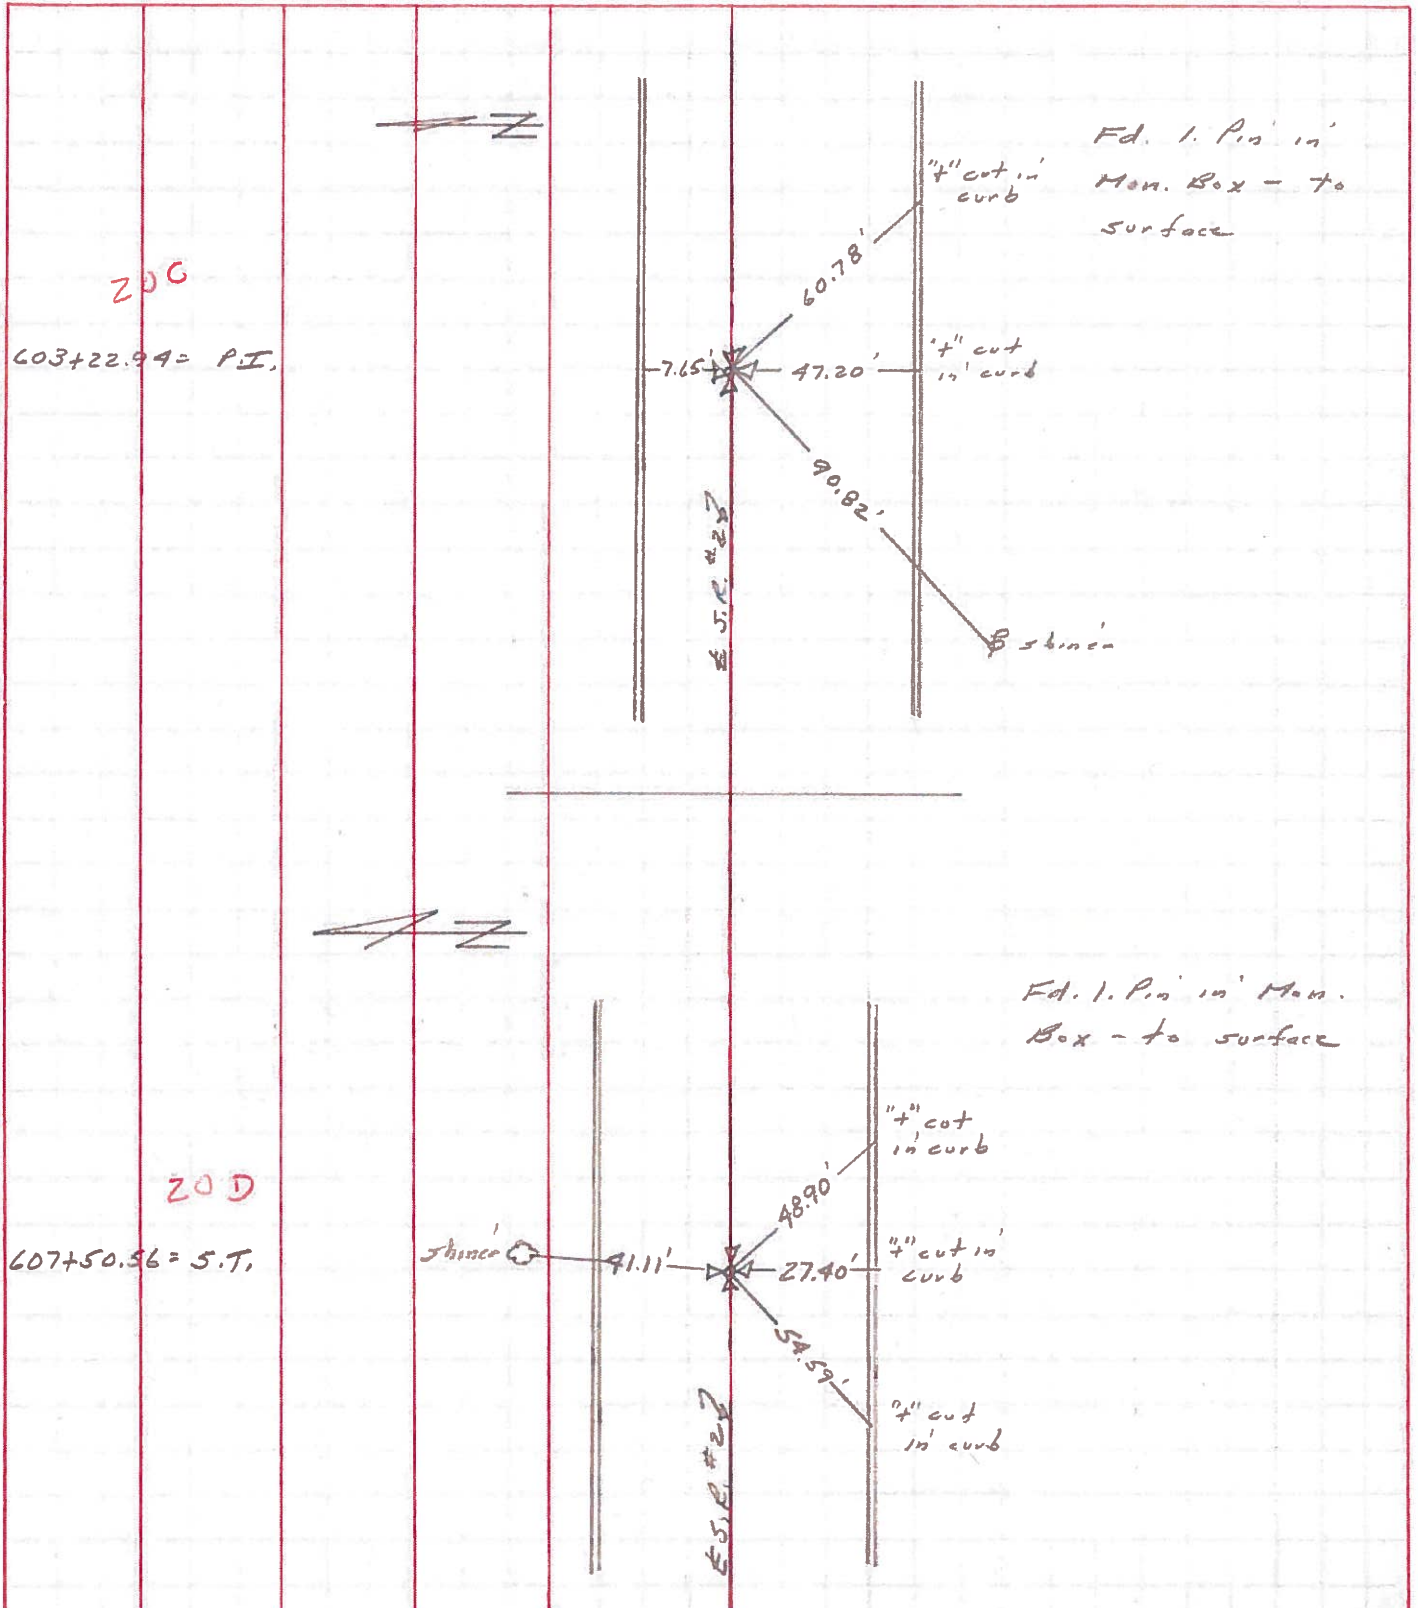 N
"+" cut in
curb
Fd. I. Pin in
Mon. Box - to
surface
60.78'
20C
603+22.94 = P.I.
7.65'
47.20'
"+" cut
in curb
90.82'
℄ S.R. #2
shiner
N
Fd. I. Pin in Mon.
Box - to surface
"+" cut
in curb
48.90'
20D
607+50.56 = S.T.
shiner
41.11'
27.40'
"+" cut in
curb
54.59'
"+" cut
in curb
℄ S.R. #2